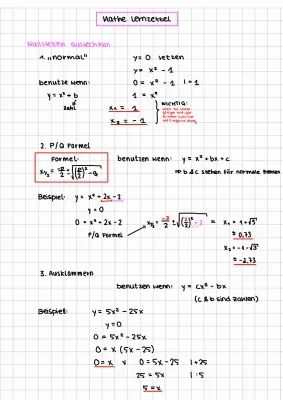 Mathe Lernzettel
Nullstellen ausrechnen
1. "normal"
y = 0 setzen
y = x² - 1
benutze wenn:
0 = x² - 1 | + 1
y = x² + b
1 = x²
Zahl
x₁ = 1
WICHTIG:
x₂ = - 1
2. P/Q Formel
Formel:
benutzen wenn: y = x² + bx + c
x₁/₂ = -p/2 ± √(p/2)² - q
⇒ b & c stehen für normale Zahlen
Beispiel: y = x² + 2x - 2
y = 0
0 = x² + 2x - 2
x₁/₂ = -2/2 ± √(2/2)² + 2 = x₁ = -1 + √3
P/Q Formel
≈ 0,73
x₂ = -1 - √3
≈ -2,73
3. Ausklammern
benutzen wenn: y = cx² - bx
(c & b sind Zahlen)
Beispiel: y = 5x² - 25x
y = 0
0 = 5x² - 25x
0 = x (5x - 25)
0 = x v 0 = 5x - 25 | + 25
25 = 5x | : 5
5 = x